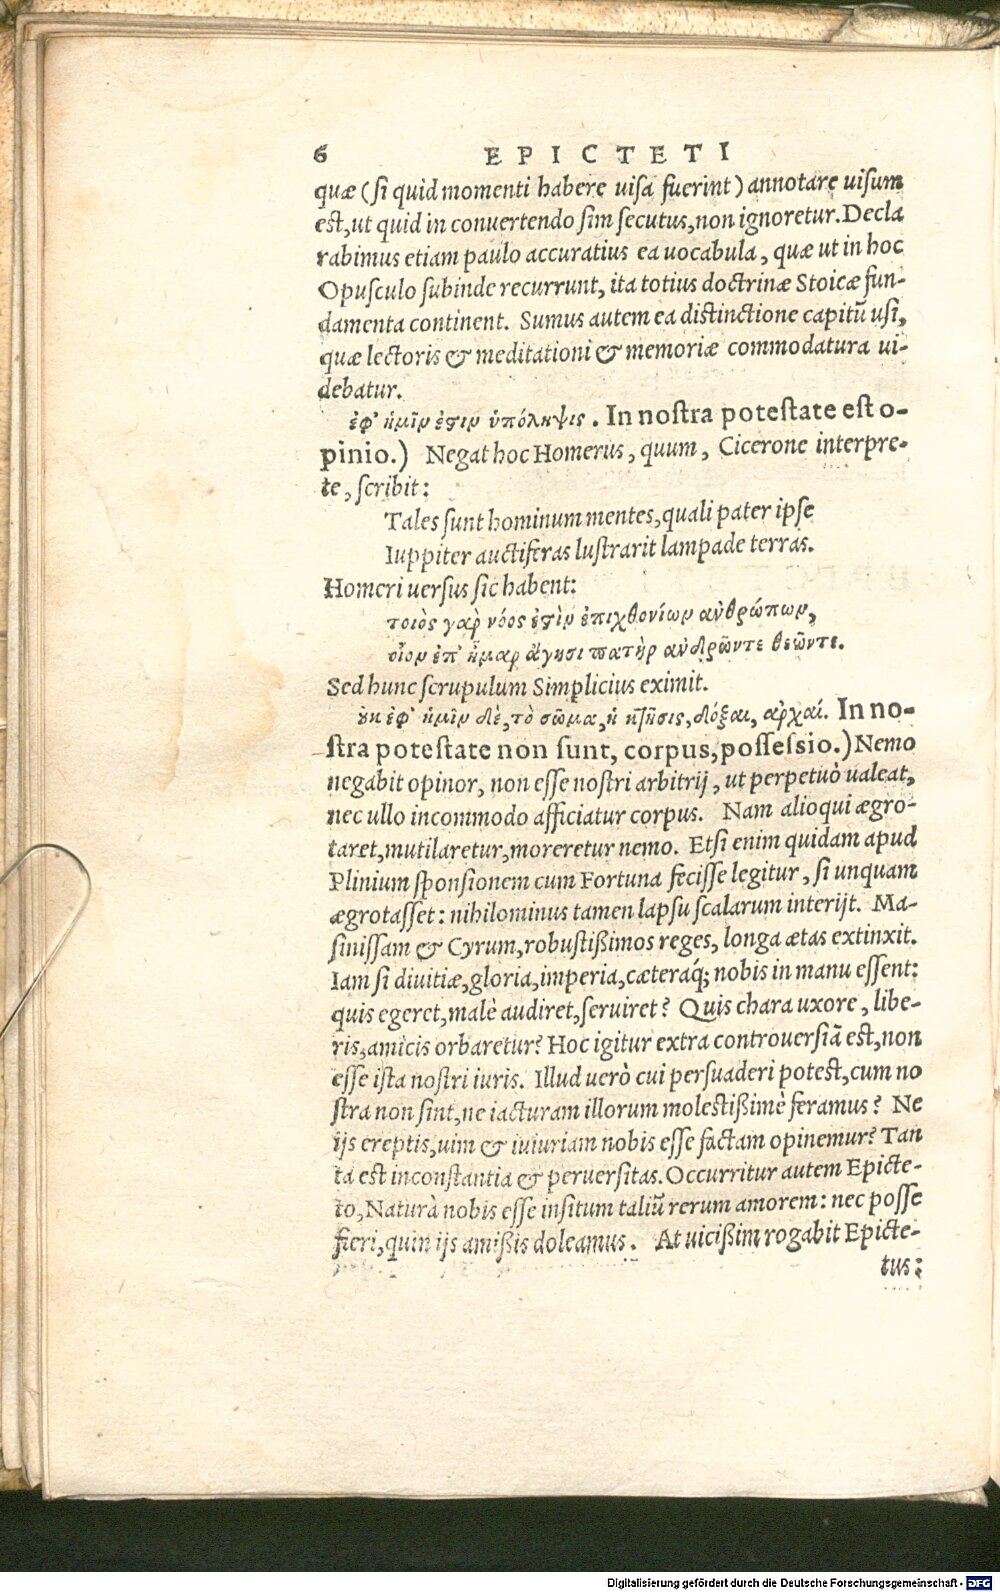 6 EPICTETI
quæ (si quid momenti habere uisa fuerint) annotare uisum
est, ut quid in conuertendo sim secutus, non ignoretur. Decla
rabimus etiam paulo accuratius ea uocabula, quæ ut in hoc
Opusculo subinde recurrunt, ita totius doctrinæ Stoicæ fun-
damenta continent. Sumus autem ea distinctione capitũ usi,
quæ lectoris & meditationi & memoriæ commodatura ui-
debatur.
ἐφ' ἡμῖν ἐστιν ὑπόληψις. In nostra potestate est o-
pinio.) Negat hoc Homerus, quum, Cicerone interpre-
te, scribit:
Tales sunt hominum mentes, quali pater ipse
Iuppiter auctiferas lustrarit lampade terras.
Homeri uersus sic habent:
τοιὸς γαρ νόος ἐστὶν ἐπιχθονίων ανθρώπων,
οἷον ἐπ' ἦμαρ ἄγησι πατὴρ ανδρῶντε θεῶντε.
Sed hunc scrupulum Simplicius eximit.
ουκ ἐφ' ἡμῖν δὲ, τὸ σῶμα, ἡ κτῆσις, δόξαι, αρχαί. In no-
stra potestate non sunt, corpus, possessio.) Nemo
negabit opinor, non esse nostri arbitrij, ut perpetuò ualeat,
nec ullo incommodo afficiatur corpus. Nam alioqui ægro-
taret, mutilaretur, moreretur nemo. Etsi enim quidam apud
Plinium sponsionem cum Fortuna fecisse legitur, si unquam
ægrotasset: nihilominus tamen lapsu scalarum interijt. Ma-
sinissam & Cyrum, robustißimos reges, longa ætas extinxit.
Iam si diuitiæ, gloria, imperia, cæteraq́; nobis in manu essent:
quis egeret, malè audiret, seruiret? Quis chara uxore, libe-
ris, amicis orbaretur? Hoc igitur extra controuersiã est, non
esse ista nostri iuris. Illud uerò cui persuaderi potest, cum no
stra non sint, ne iacturam illorum molestißimè feramus? Ne
ijs ereptis, uim & iniuriam nobis esse factam opinemur? Tan
ta est inconstantia & peruersitas. Occurritur autem Epicte-
to, Naturà nobis esse insitum taliũ rerum amorem: nec posse
fieri, quin ijs amißis doleamus. At uicißim rogabit Epicte-
tus:
Digitalisierung gefördert durch die Deutsche Forschungsgemeinschaft - DFG